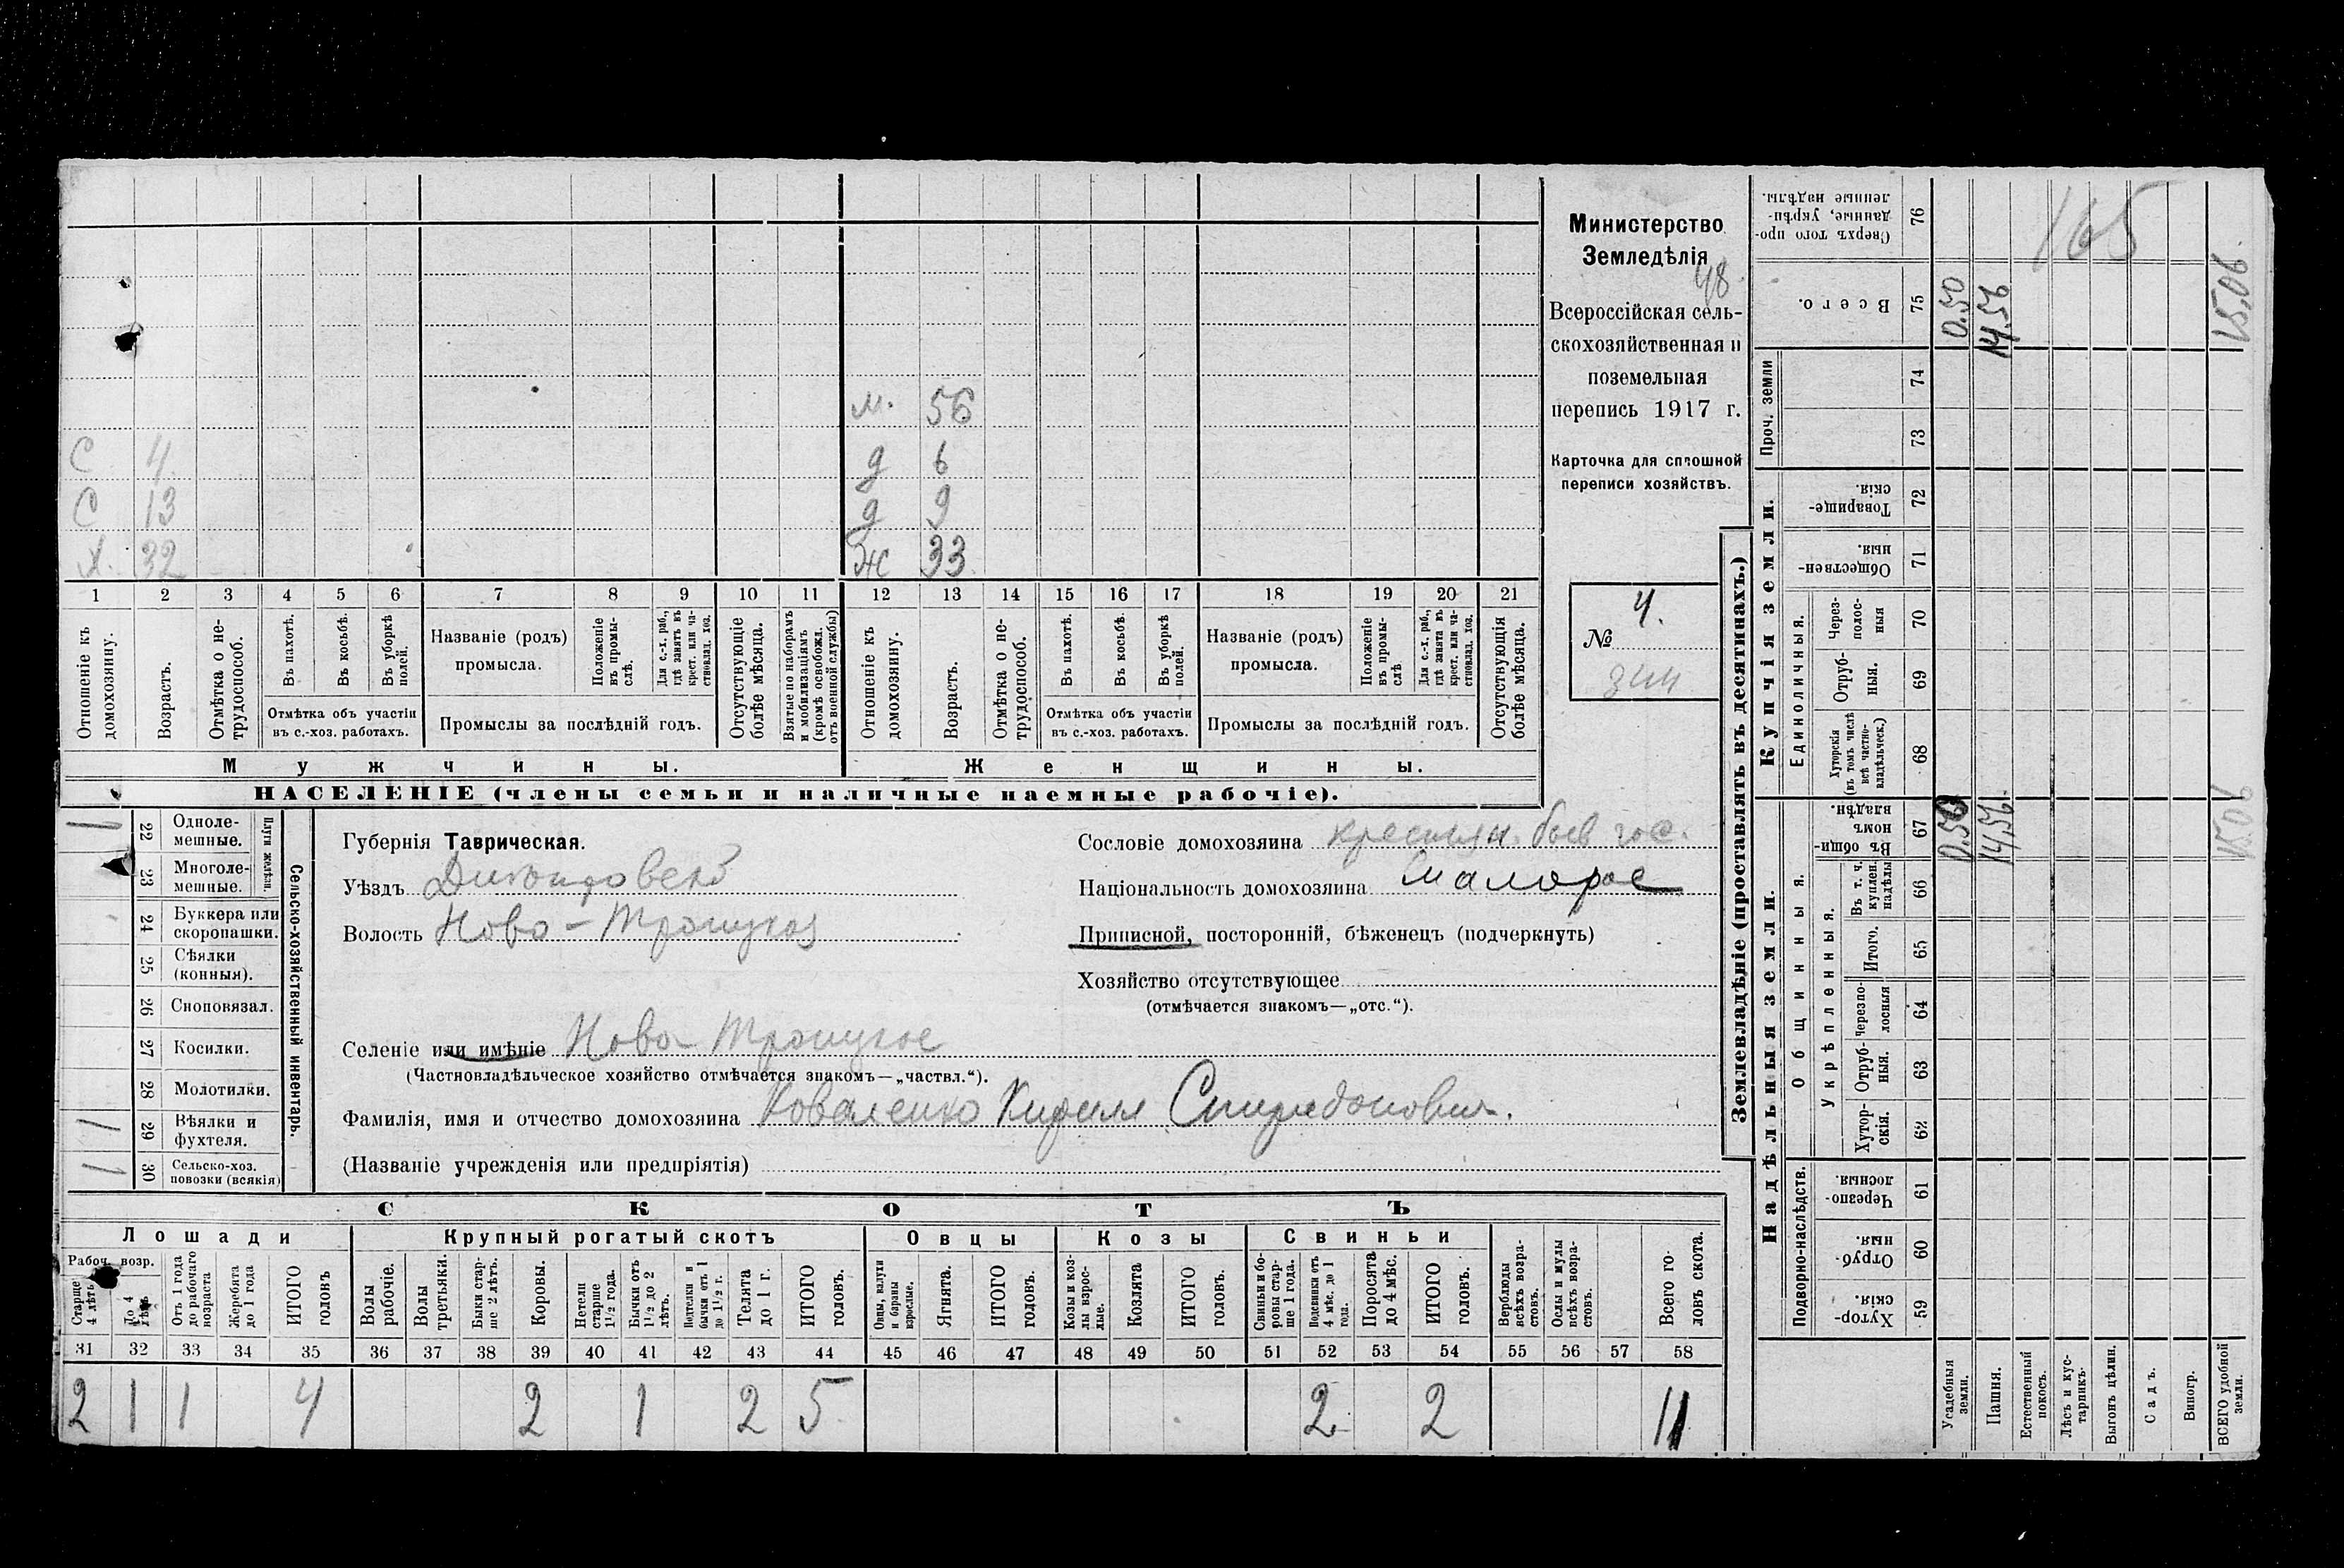 Министерство
Земледѣлія
48.
Всероссійская сель-
скохозяйственная и
поземельная
перепись 1917 г.
Карточка для сплошной
переписи хозяйствъ.
№ 4.
м. 56
С 4 д 6
С 13 д 9
Х. 32 Ж 33
1 2 3 4 5 6 7 8 9 10 11 12 13 14 15 16 17 18 19 20 21
Отношеніе къ домохозяину.
Возрастъ.
Отмѣтка о не-
трудоспособ.
Въ пахотѣ.
Въ косьбѣ.
Въ уборкѣ
полей.
Отмѣтка объ участіи
въ с.-хоз. работахъ.
Названіе (родъ)
промысла.
Положеніе
въ промы-
слѣ.
Для с.-х. раб.,
гдѣ занятъ въ
крест. или ча-
стновлад. хоз.
Промыслы за послѣдній годъ.
Отсутствующіе
болѣе мѣсяца.
Взятые по наборамъ
и мобилизаціямъ
(кромѣ освобожд.
отъ военной службы)
Отношеніе къ
домохозяину.
Возрастъ.
Отмѣтка о не-
трудоспособ.
Въ пахотѣ.
Въ косьбѣ.
Въ уборкѣ
полей.
Отмѣтка объ участіи
въ с.-хоз. работахъ.
Названіе (родъ)
промысла.
Положеніе
въ промы-
слѣ
Для с.-х. раб.,
гдѣ занята въ
крест. или ча-
стновлад. хоз.
Промыслы за послѣдній годъ.
Отсутствующія
болѣе мѣсяца.
Мужчины.
Женщины.
НАСЕЛЕНІЕ (члены семьи и наличные наемные рабочіе).
Сельско-хозяйственный инвентарь.
Плуги желѣзн.
1 22 Одноле-
мешные.
23 Многоле-
мешные.
24 Буккера или
скоропашки.
25 Сѣялки
(конныя).
26 Сноповязал.
27 Косилки.
28 Молотилки.
1 29 Вѣялки и
фухтеля.
1 30 Сельско-хоз.
повозки (всякія)
Губернія Таврическая.
Уѣздъ
Волость Ново-Троицкая
Сословіе домохозяина крестьян. быв гос.
Національность домохозяина Малорос
Приписной, посторонній, бѣженецъ (подчеркнуть)
Хозяйство отсутствующее
(отмѣчается знакомъ—„отс.“).
Селеніе или имѣніе Ново-Троицкое
(Частновладѣльческое хозяйство отмѣчается знакомъ—„частвл.“).
Фамилія, имя и отчество домохозяина Коваленко Кирилл Спиридонович.
(Названіе учрежденія или предпріятія)
СКОТЪ
Лошади
Крупный рогатый скотъ
Овцы
Козы
Свиньи
Рабоч. возр.
Старше
4 лѣтъ
До 4
лѣтъ
Отъ 1 года
до рабочаго
возраста
Жеребята
до 1 года
ИТОГО
головъ
Волы
рабочіе.
Волы
третьяки.
Быки стар-
ше 2 лѣтъ.
Коровы.
Нетели
старше
1½ года.
Бычки отъ
1½ до 2
лѣтъ.
Подтелки и
бычки отъ 1
до 1½ г.
Телята
до 1 г.
ИТОГО
головъ.
Овцы, валухи
и бараны
взрослые.
Ягнята.
ИТОГО
головъ.
Козы и коз-
лы взрос-
лые.
Козлята
ИТОГО
головъ.
Свиньи и бо-
ровы стар-
ше 1 года.
Подсвинки отъ
4 мѣс. до 1
года.
Поросята
до 4 мѣс.
ИТОГО
головъ.
Верблюды
всѣхъ возра-
стовъ.
Ослы и мулы
всѣхъ возра-
стовъ.
Всего го-
ловъ скота.
31 32 33 34 35 36 37 38 39 40 41 42 43 44 45 46 47 48 49 50 51 52 53 54 55 56 57 58
2 1 1 4 2 1 2 5 2 2 11
Землевладѣніе (проставлять въ десятинахъ.)
Надѣльныя земли.
Купчія земли.
Проч. земли
Подворно-наслѣдств.
Общинныя.
Укрѣпленныя.
Единоличныя.
Сверхъ того про-
данные, укрѣп-
ленные надѣлы. 76 165
Всего. 75 0.50 14,56 15,06
74
73
Товарище-
скія. 72
Обществен-
ныя. 71
Через-
полос-
ныя 70
Отруб-
ныя. 69
Хуторскія
(въ томъ числѣ
всѣ частно-
владѣльческ.) 68
Въ общи-
номъ
владѣн. 67 0.50 14,56. 15.06
Въ т. ч.
куплен.
надѣлы 66
Итого. 65
Черезпо-
лосныя 64
Отруб-
ныя. 63
Хутор-
скія. 62
Черезпо-
лосныя 61
Отруб-
ныя. 60
Хутор-
скія. 59
Усадебныя
земли.
Пашня.
Естественный
покосъ.
Лѣсъ и кус-
тарникъ.
Выгонъ цѣлин.
Садъ.
Виногр.
ВСЕГО удобной
земли.